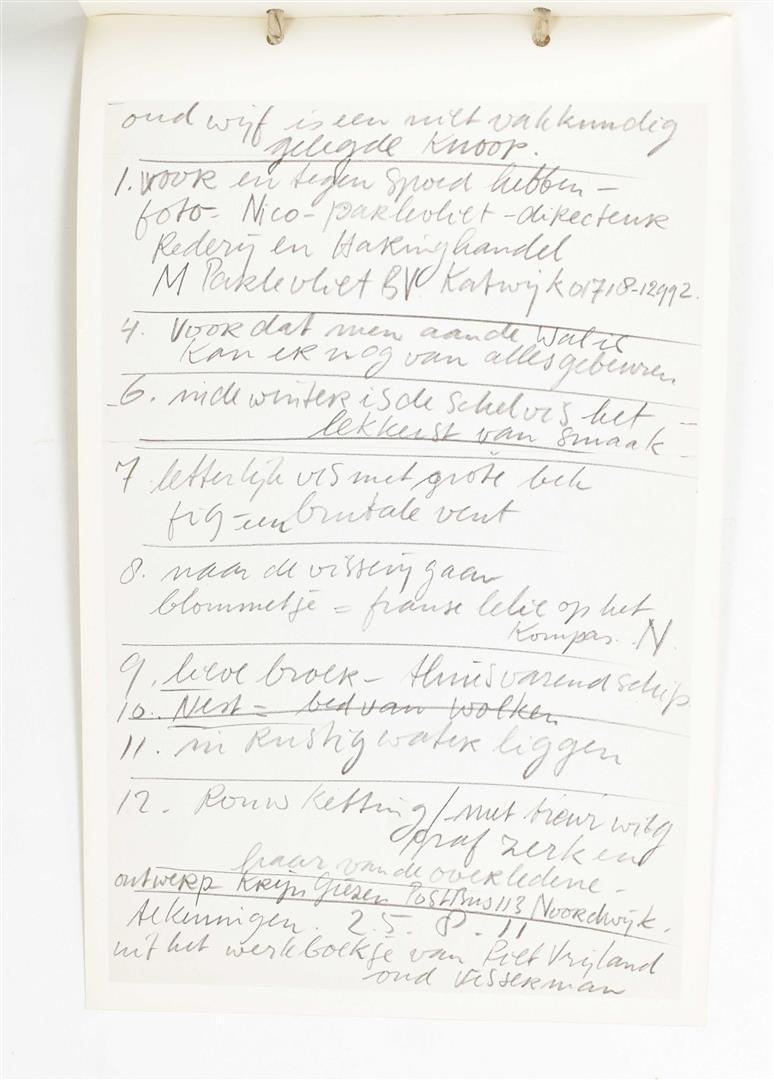 oud wijf is een niet vakkundig
gelegde Knoop.
1. voor en tegen spoed hebben -
foto - Nico - parlevliet - directeur
Rederij en Haringhandel
M Parlevliet BV Katwijk 01718-12992.
4. Voor dat men aan de wal is
kan er nog van alles gebeuren
6. in de winter is de schelvis het
lekkerst van smaak
7 letterlijk vis met grote bek
fig - een brutale vent
8. naar de visserij gaan
blommetje = franse lelie op het
Kompas. N.
9. lieve broek - thuisvarend schip
10. Nest = bed van wolken
11. in Rustig water liggen
12. Rouwketting / met treur wilg
graf zerk en
haar van de overledene -
ontwerp Krijn Giezen Postbus 113 Noordwijk.
tekeningen. 2. 5. 8. 11
uit het werkboekje van Piet Vrijland
oud visserman